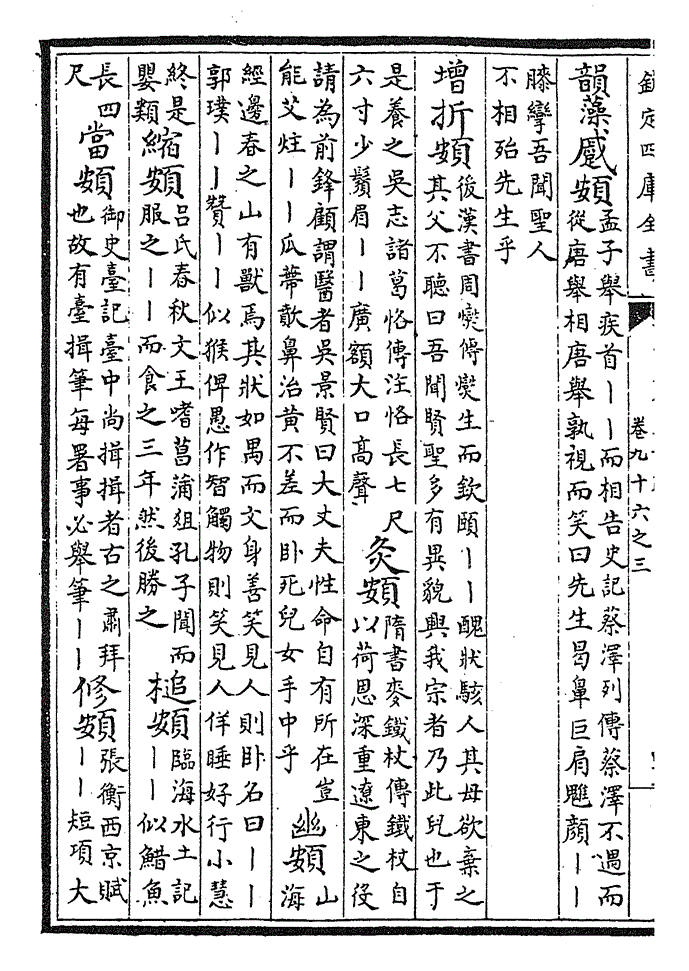 欽定四庫全書
卷九十六之三
韻藻蹙頞
孟子舉疾首丨丨而相告史記蔡澤列傳蔡澤不遇而
從唐舉相唐舉孰視而笑曰先生曷鼻巨肩魋顏丨丨
膝攣吾聞聖人
不相殆先生乎
增折頞
後漢書周燮傳燮生而欽頤丨丨醜狀駭人其母欲棄之
其父不聽曰吾聞賢聖多有異貌興我宗者乃此兒也于
是養之吳志諸葛恪傳注恪長七尺
六寸少鬚眉丨丨廣額大口高聲
灸頞
隋書麥鐵杖傳鐵杖自
以荷恩深重遼東之役
請為前鋒顧謂醫者吳景賢曰大丈夫性命自有所在豈
能艾炷丨丨瓜蔕歕鼻治黄不差而卧死兒女手中乎
幽頞
山
海
經邊春之山有獸焉其狀如禺而文身善笑見人則卧名曰丨丨
郭璞丨丨贊丨丨似猴俾愚作智觸物則笑見人佯睡好行小慧
終是
嬰類
縮頞
呂氏春秋文王嗜菖蒲俎孔子聞而
服之丨丨而食之三年然後勝之
槌頞
臨海水土記
丨丨似鯌魚
長四
尺
當頞
御史臺記臺中尚揖揖者古之肅拜
也故有臺揖筆每署事必舉筆丨丨
修頞
張衡西京賦
丨丨短項大